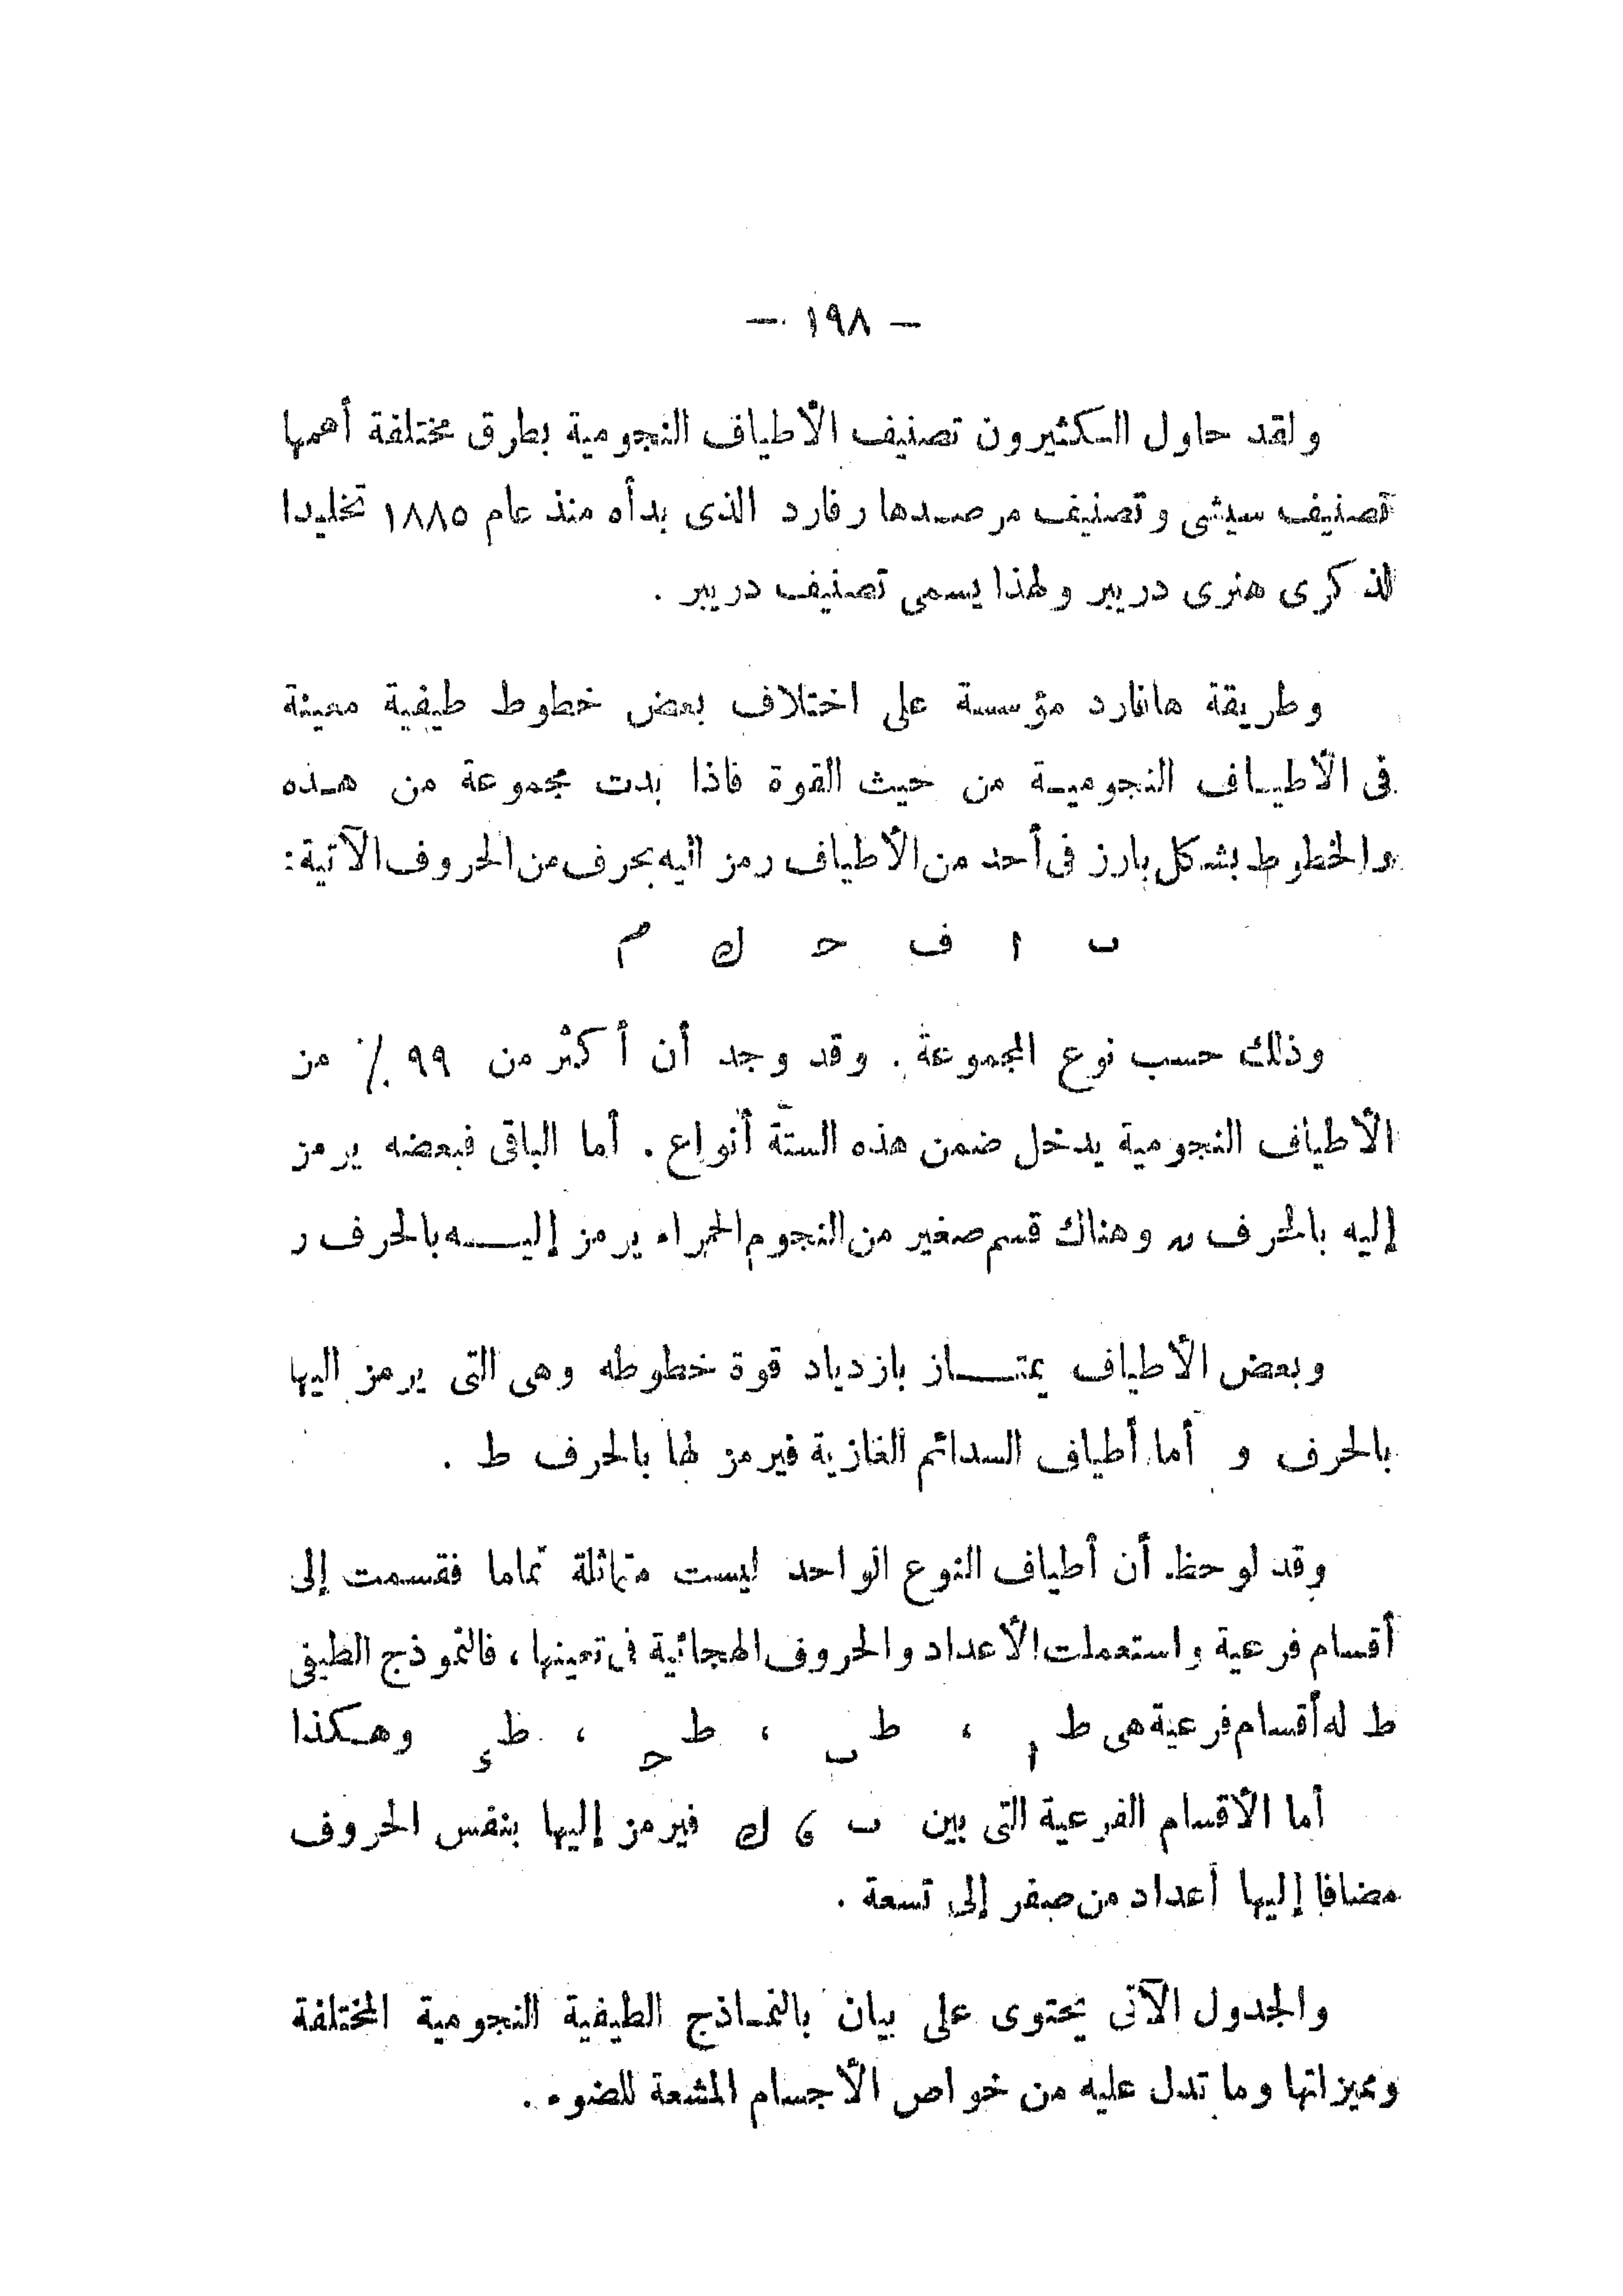 — ١٩٨ —
ولقد حاول الكثيرون تصنيف الأطياف النجومية بطرق مختلفة أهمها
تصنيف سيشى وتصنيف مرصدهارفارد الذى بدأه منذ عام ١٨٨٥ تخليدا
لذكرى هنرى دريبر ولهذا يسمى تصنيف دريبر .
وطريقة هافارد مؤسسة على اختلاف بعض خطوط طيفية معينة
فى الأطياف النجومية من حيث القوة فاذا بدت مجموعة من هذه
والخطوط بشكل بارز فى أحد من الأطياف رمز اليه بحرف من الحروف الآتية :
ب ا ف ح ك م
وذلك حسب نوع المجموعة . وقد وجد أن أكثر من ٩٩ ٪ من
الأطياف النجومية يدخل ضمن هذه الستة أنواع . أما الباقى فبعضه يرمز
إليه بالحرف ن وهناك قسم صغير من النجوم الحمراء يرمز إليه بالحرف ر
وبعض الأطياف يمتاز بازدياد قوة خطوطه وهى التى يرمز اليها
بالحرف و أما أطياف السدائم الغازية فيرمز لها بالحرف ط .
وقد لوحظ أن أطياف النوع الواحد ليست متماثلة تماما فقسمت إلى
أقسام فرعية واستعملت الأعداد والحروف الهجائية فى تعينها ، فالنموذج الطيفى
ط له أقسام فرعية هى ط ا ، ط ب ، ط ح ، ط ء وهكذا
أما الأقسام الفرعية التى بين ب ، ك فيرمز إليها بنفس الحروف
مضافا إليها أعداد من صفر إلى تسعة .
والجدول الآتى يحتوى على بيان بالنماذج الطيفية النجومية المختلفة
ومميزاتها وما تدل عليه من خواص الأجسام المشعة للضوء .